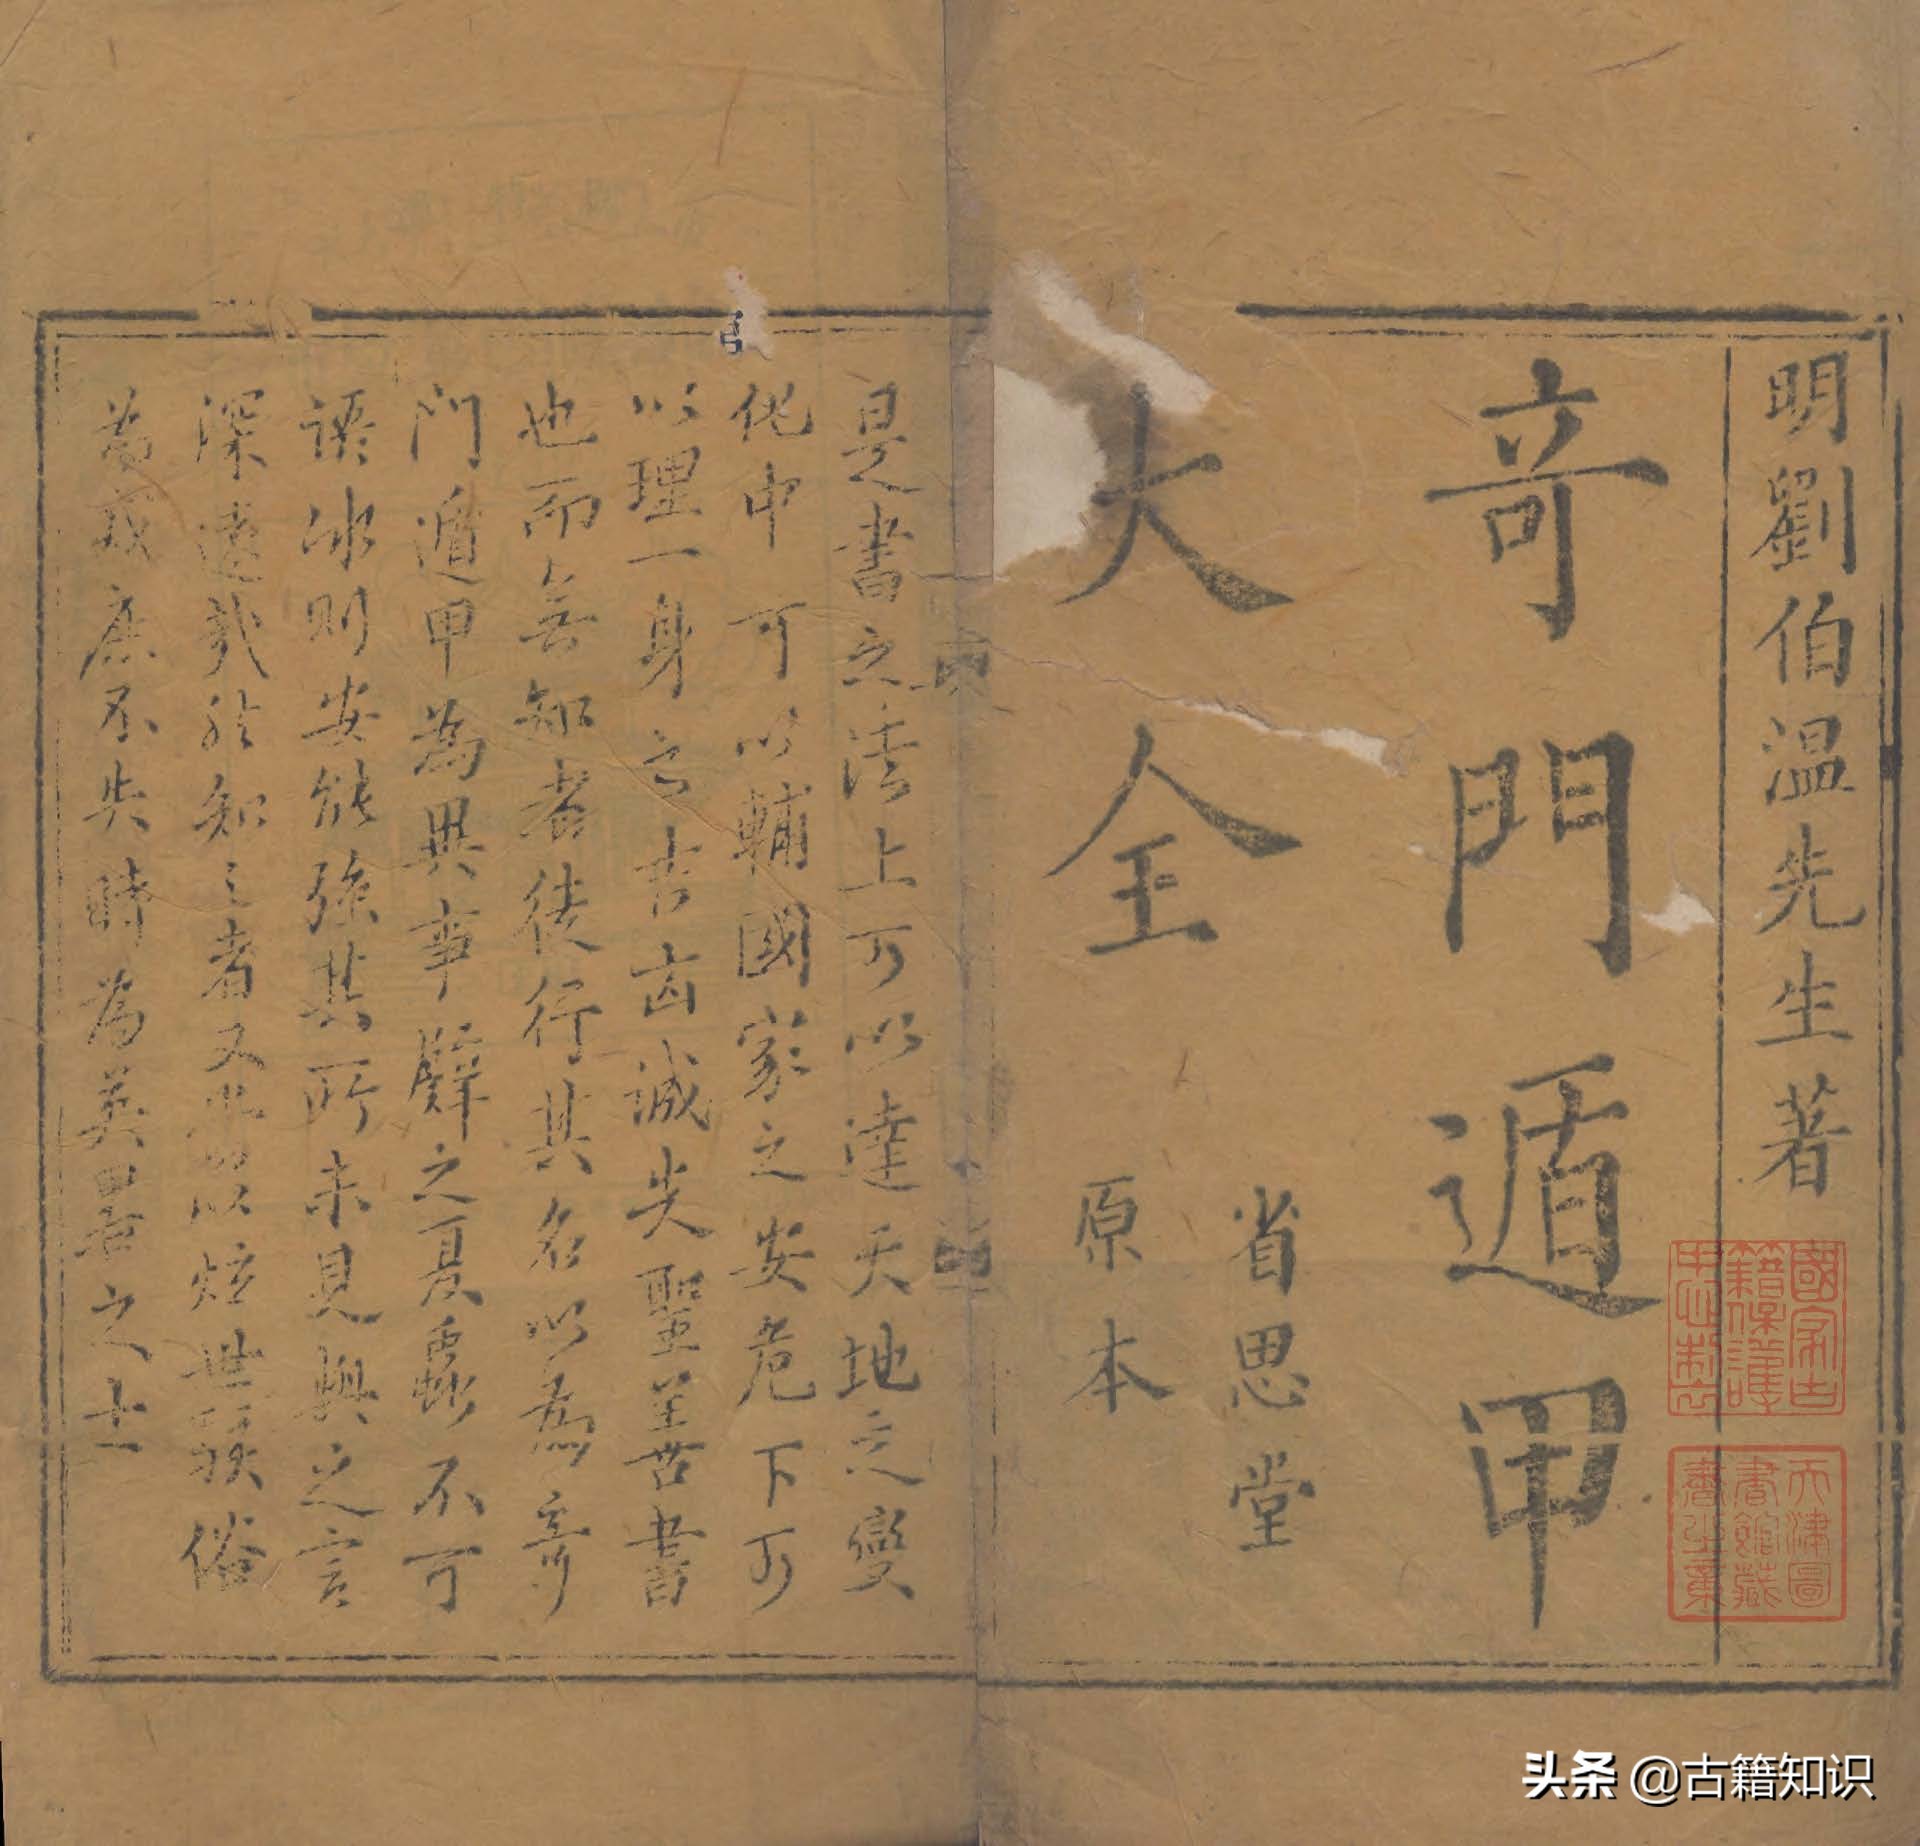 明劉伯溫先生著
竒門遁甲
大全
省思堂
原本
國家古
籍保護
中心制
天津圖
書館藏
書之章
是書之法上可以達天地之變
化中可以輔國家之安危下可
以理一身之吉凶誠失聖至苦書
也而無知者徒行其名以為竒
門遁甲為異事譬之夏蟲不可
語冰則安能強其所未見與之言
深遠哉於知之者又以炫世駭俗
為庶不失時為英君之士
头条 @古籍知识